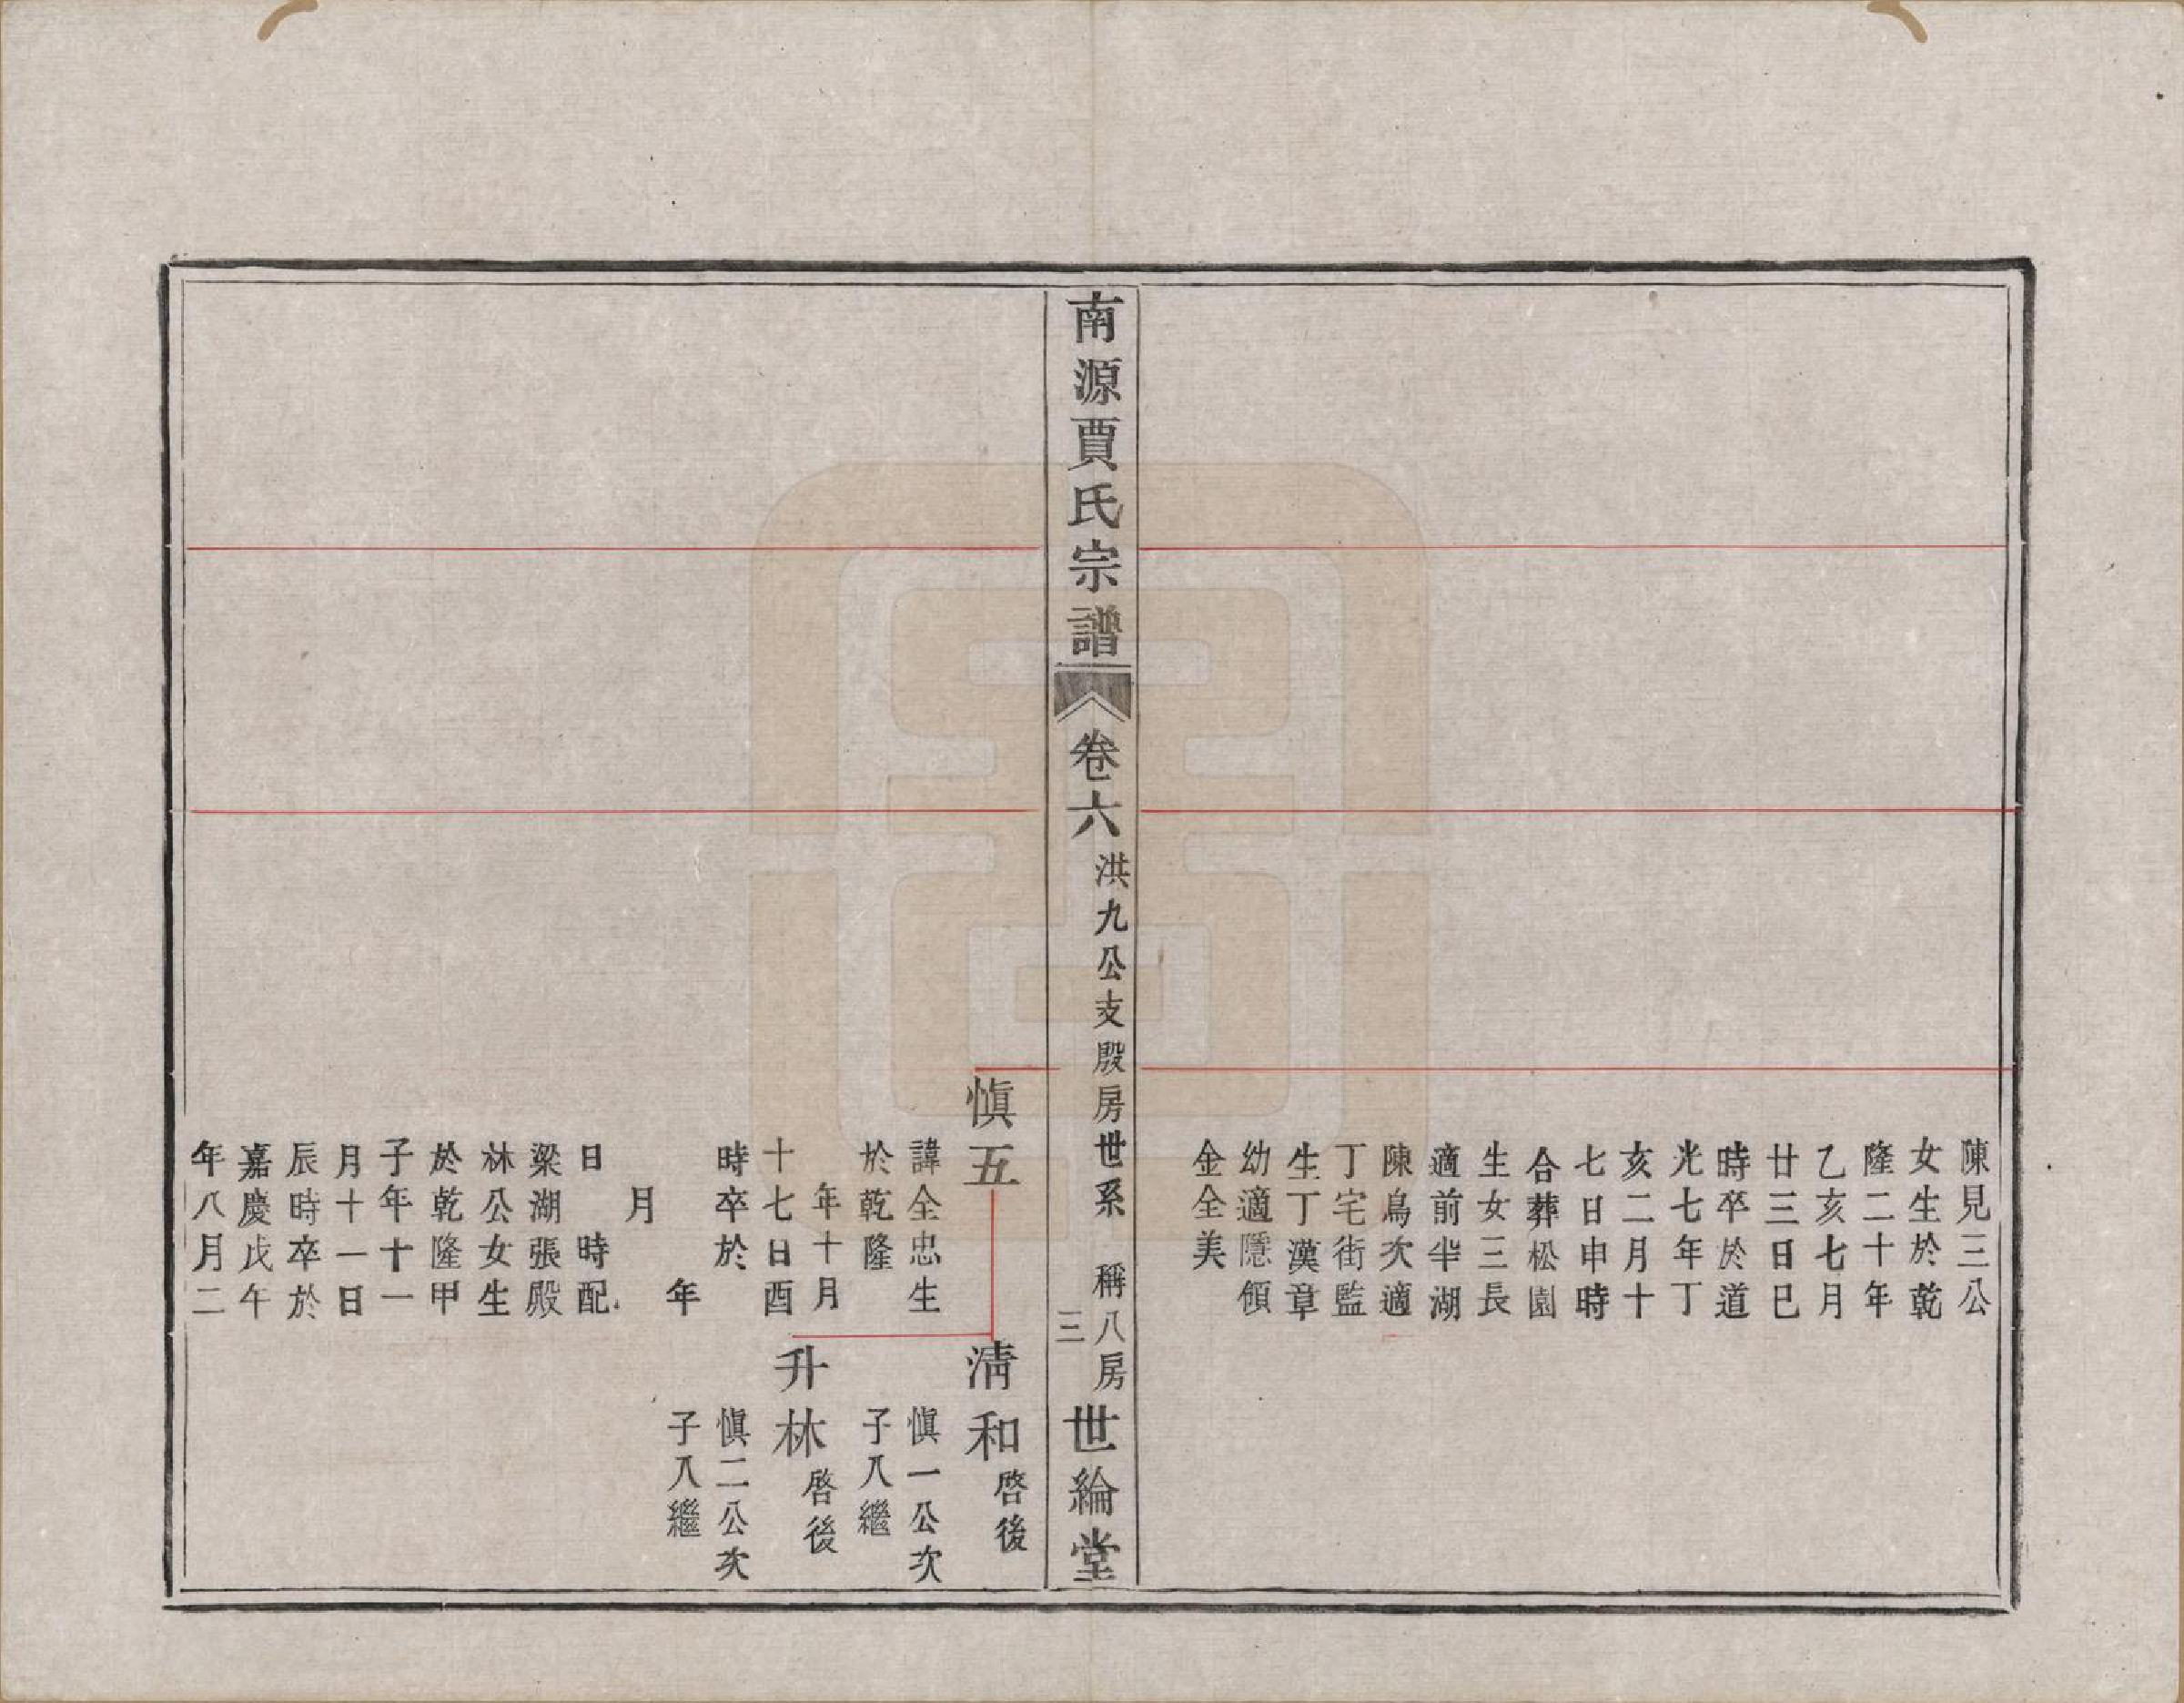 陳見三公
女生於乾
隆二十年
乙亥七月
廿三日巳
時卒於道
光七年丁
亥二月十
七日申時
合葬松園
生女三長
適前半湖
陳鳥次適
丁宅街監
生丁漢章
幼適隱領
金全美
南源賈氏宗譜
卷六
洪九公支殷房世系
稱八房
三
世綸堂
慎五
諱全忠生
於乾隆
年十月
十七日酉
時卒於
年
月
日 時配
梁湖張殿
林公女生
於乾隆甲
子年十一
月十一日
辰時卒於
嘉慶戊午
年八月二
清和 啓後
慎一公次
子入繼
升林 啓後
慎二公次
子入繼